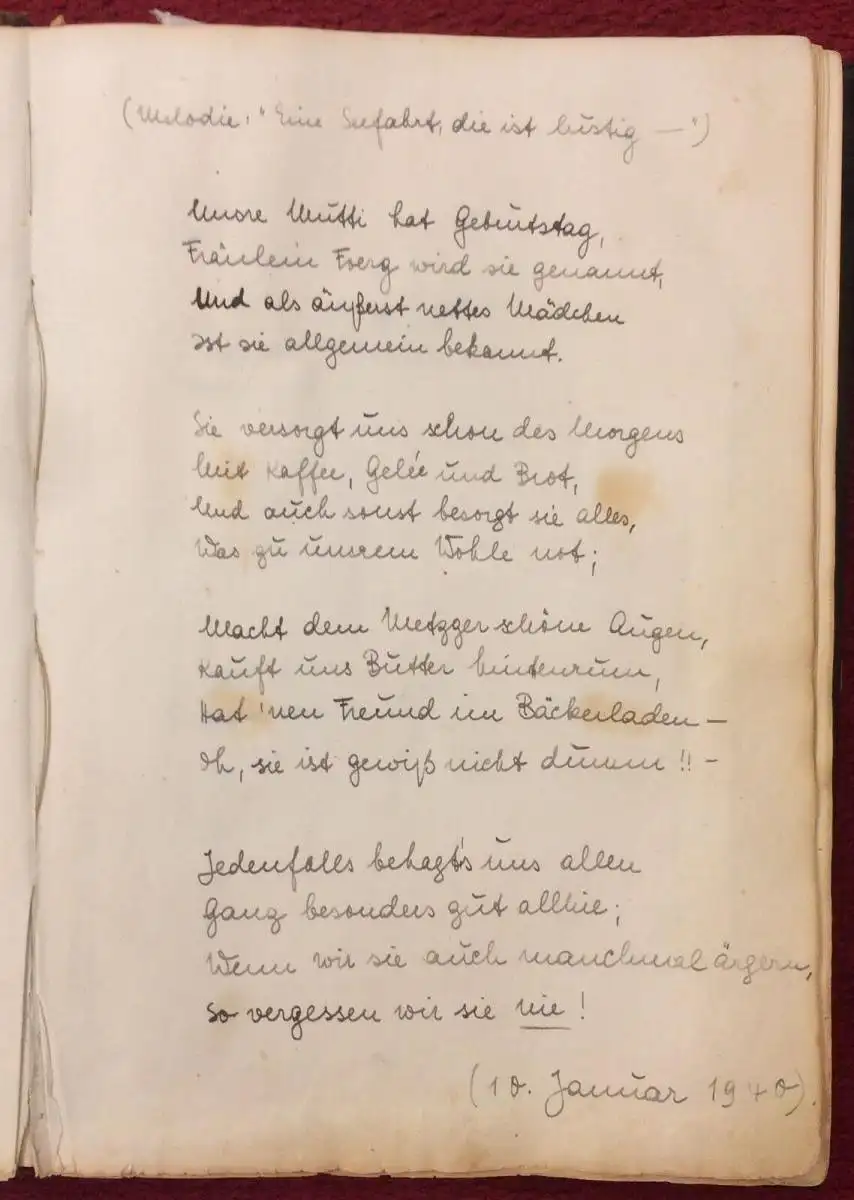 (Melodie: "Eine Seefahrt, die ist lustig —")
Unsre Mutti hat Geburtstag,
Fräulein Foerg wird sie genannt,
Und als äußerst nettes Mädchen
Ist sie allgemein bekannt.
Sie versorgt uns schon des Morgens
Mit Kaffee, Gelée und Brot,
Und auch sonst besorgt sie alles,
Was zu unsrem Wohle not;
Macht dem Metzger schöne Augen,
Kauft uns Butter hintenrum,
Hat 'nen Freund im Bäckerladen —
Oh, sie ist gewiß nicht dumm !! -
Jedenfalls behagt's uns allen
Ganz besonders gut allhie;
Wenn wir sie auch manchmal ärgern,
So vergessen wir sie nie !
(10. Januar 1940).